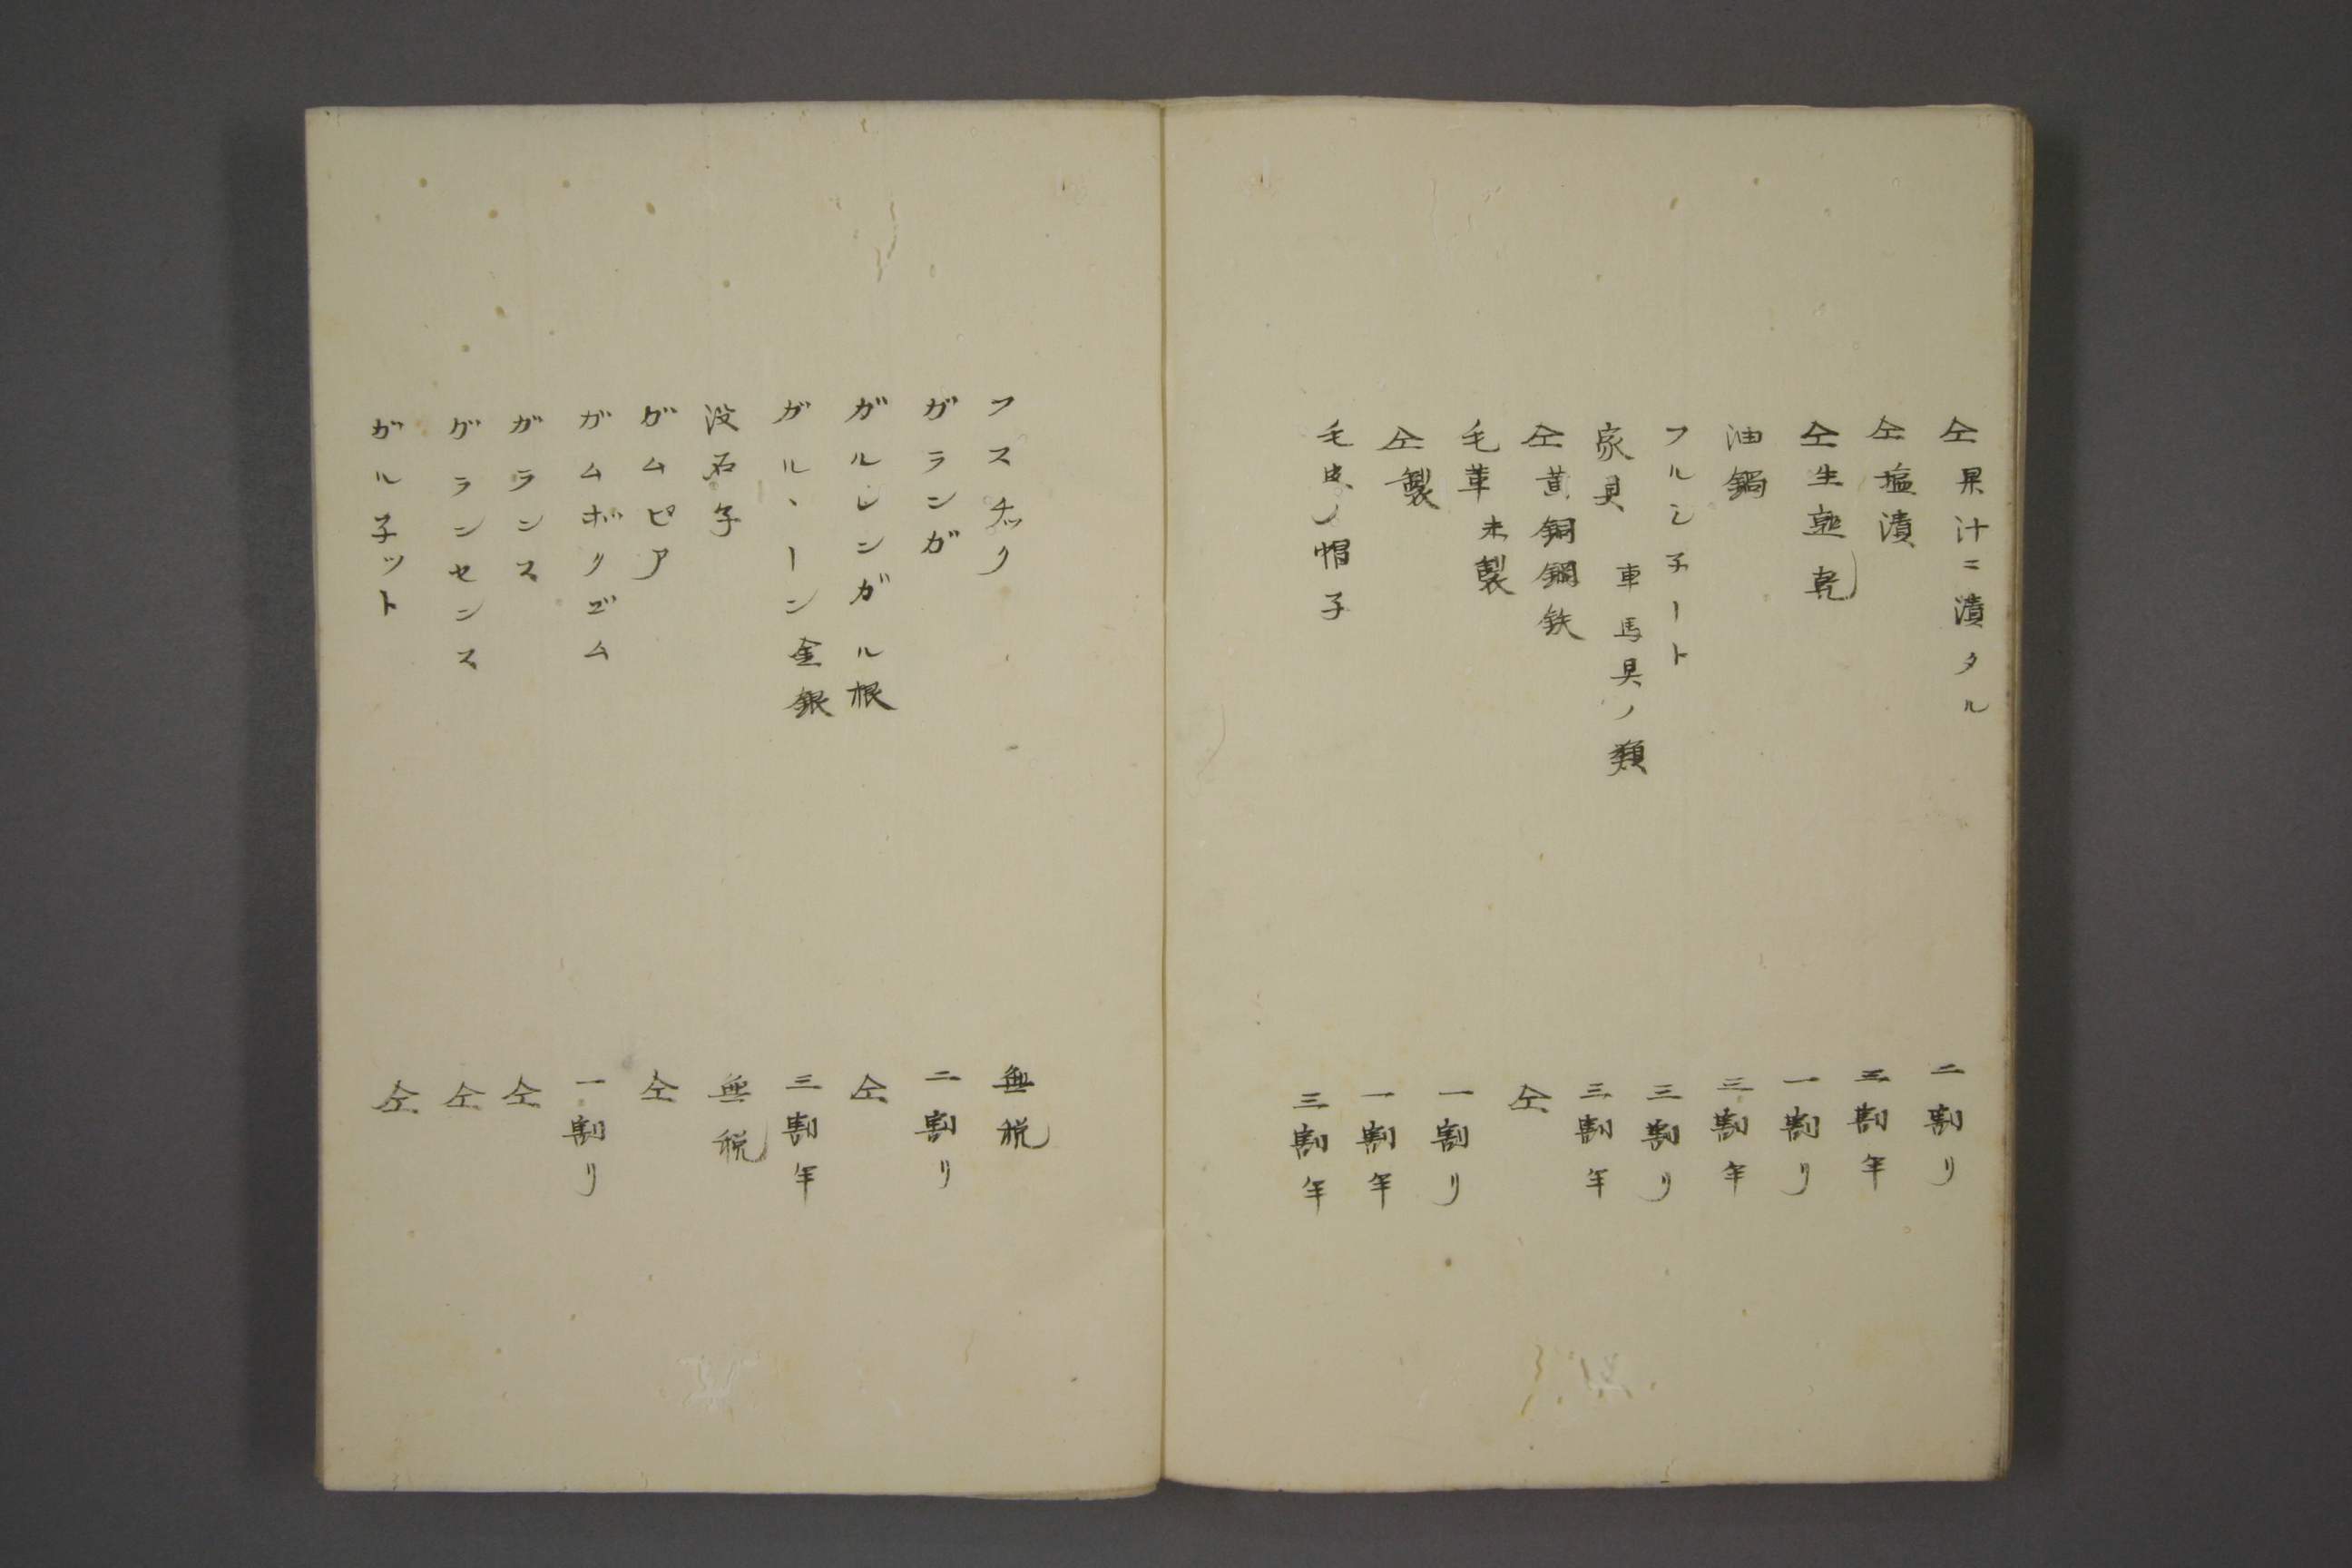 仝果汁ニ漬タル 二割リ
仝塩漬 三割半
仝生並乾 一割リ
油鍋 三割半
フルシ子ート 三割リ
家具 車馬具ノ類 三割半
仝黄銅鋼鉄 仝
毛革未製 一割リ
仝製 一割半
毛皮ノ帽子 三割半
フスチック 無税
ガランガ 二割リ
ガルレンガル根 仝
ガルヽーン金銀 三割半
没石子 無税
ガムピア 仝
ガムボクゴム 一割リ
ガランス 仝
グランセンス 仝
ガル子ット 仝